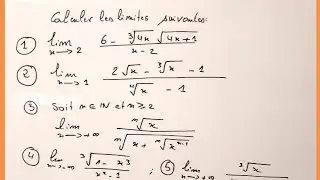 Calculer les limites suivantes:
① lim x→2 (6 - ∛(4x) √(4x+1)) / (x-2)
② lim x→1 (2√x - ∛x - 1) / (∜x - 1)
③ Soit n ∈ ℕ et n ≥ 2
lim x→+∞ ⁿ√x / ⁿ√(x + ⁿ√(xⁿ⁻¹))
④ lim x→-∞ ∛(1 - x³) / (x² - 1) ; ⑤ lim x→+∞ ∛x